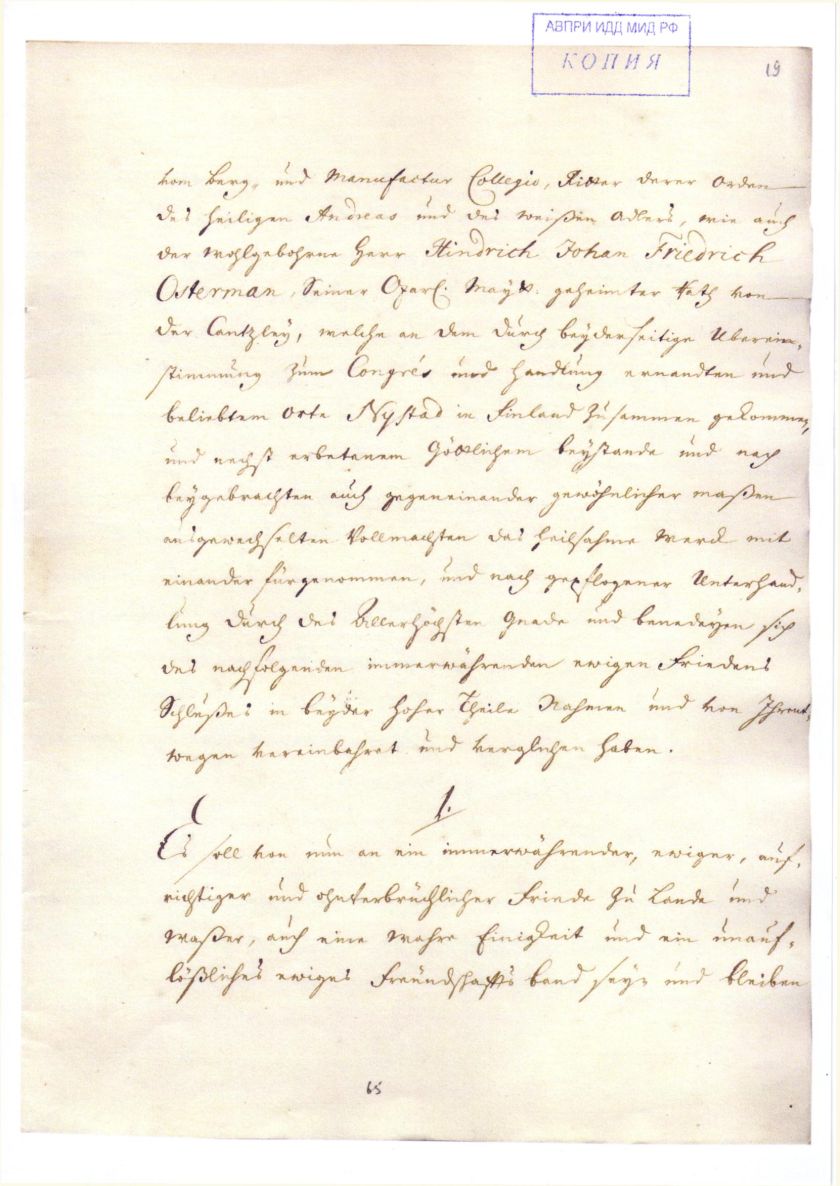 АВПРИ ИДД МИД РФ
КОПИЯ
19
vom Berg- und Manufactur Collegio, Ritter derer Orden
des heiligen Andreas und des weißen Adlers, wie auch
der wohlgebohrne Herr Hindrich Johan Friedrich
Osterman, Seiner Czarl: Mayt: geheimter Rath von
der Cantzley, welche an dem durch beyderseitige Uberein-
stimmung zum Congrés und Handlung ernandten und
beliebtem Orte Nystad in Finland zusammen gekommen,
und nechst erbetenem Göttlichem beystande und nach
beygebrachten auch gegeneinander gewöhnlicher maßen
ausgewechselten Vollmachten das heilsahme Werck mit
einander fürgenommen, und nach gepflogener Unterhand-
lung durch des Allerhöchsten Gnade und benedeyen sich
des nachfolgenden immerwährenden ewigen Friedens
Schlußes in beyder hoher Theile Nahmen und von Ihrent-
wegen vereinbahret und verglichen haben.
1.
Es soll von nun an ein immerwährender, ewiger, auf-
richtiger und ohnterbrüchlicher Friede zu Lande und
Waßer, auch eine wahre Einigkeit und ein unauf-
lößliches ewiges Freündschaffts band seyn und bleiben
65